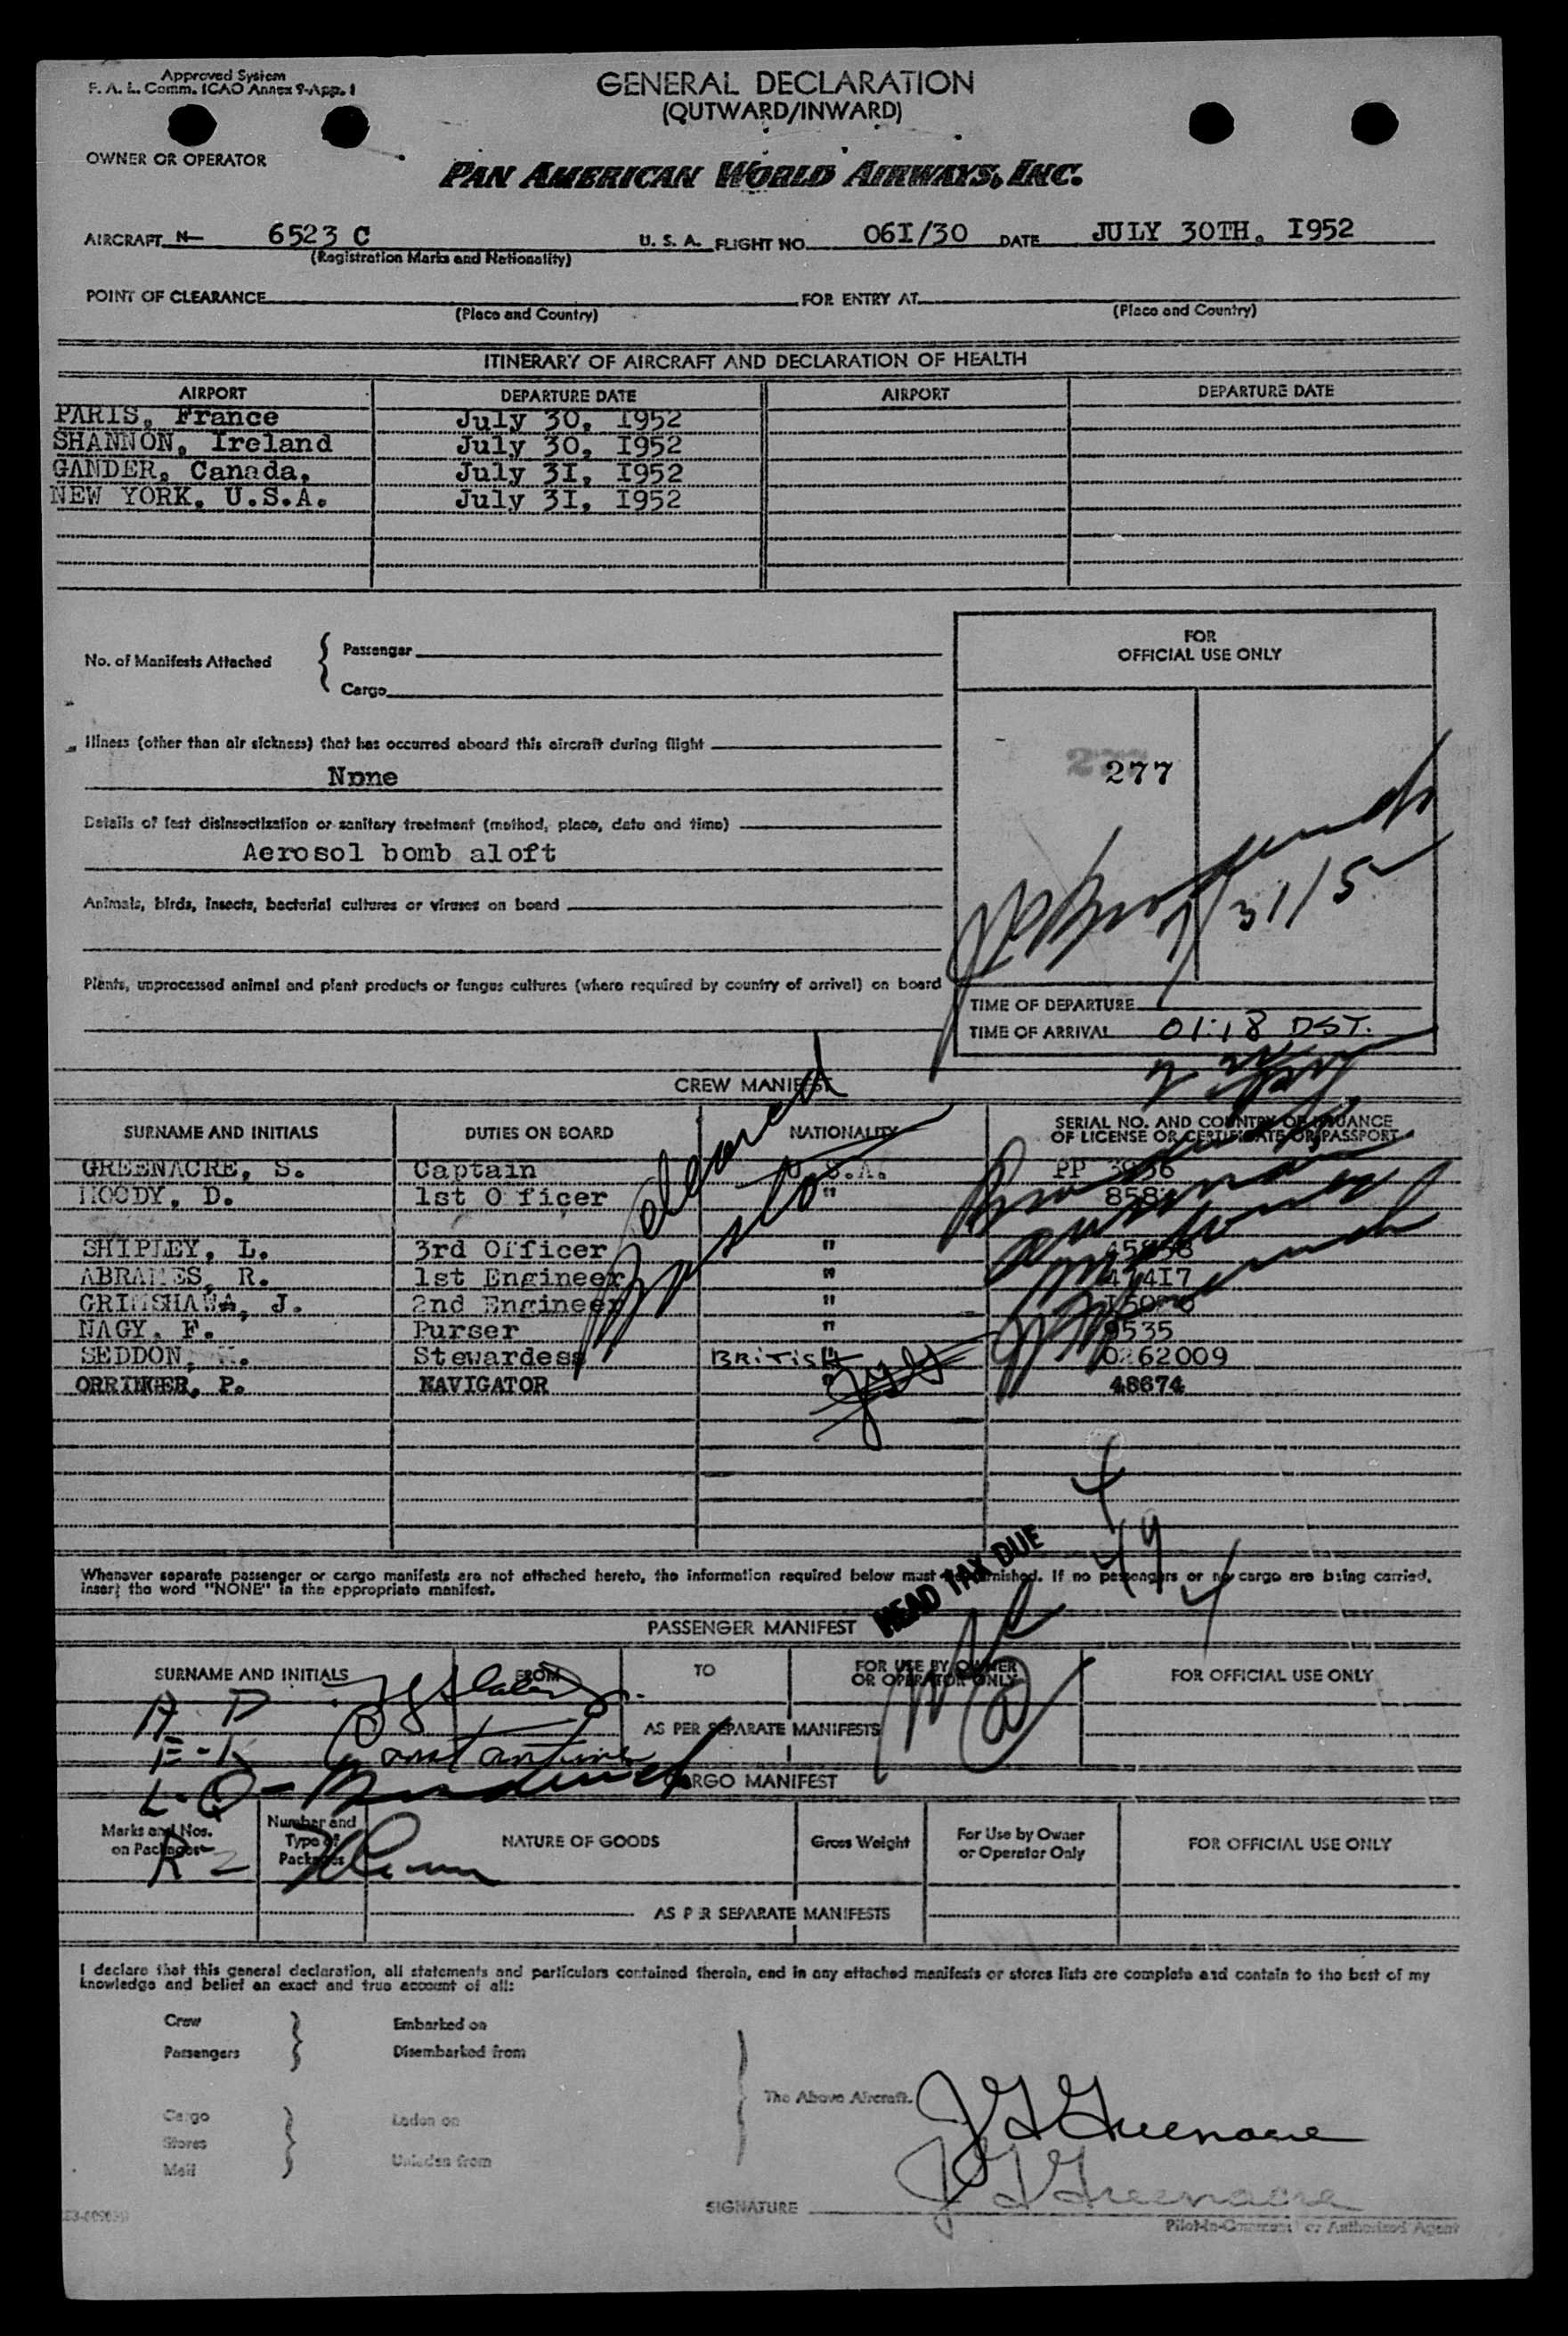 Approved System
F. A. L. Comm. ICAO Annex 9-App. 1
GENERAL DECLARATION
(OUTWARD/INWARD)
OWNER OR OPERATOR
PAN AMERICAN WORLD AIRWAYS, INC.
AIRCRAFT N- 6523 C U. S. A. FLIGHT NO. 06I/30 DATE JULY 30TH. I952
(Registration Marks and Nationality)
POINT OF CLEARANCE FOR ENTRY AT
(Place and Country) (Place and Country)
ITINERARY OF AIRCRAFT AND DECLARATION OF HEALTH
AIRPORT DEPARTURE DATE AIRPORT DEPARTURE DATE
PARIS, France July 30, I952
SHANNON, Ireland July 30, I952
GANDER, Canada, July 3I, I952
NEW YORK, U.S.A. July 3I, I952
FOR
OFFICIAL USE ONLY
No. of Manifests Attached { Passenger
Cargo
Illness (other than air sickness) that has occurred aboard this aircraft during flight
None
277
277
Details of last disinsectization or sanitary treatment (method, place, date and time)
Aerosol bomb aloft
Animals, birds, insects, bacterial cultures or viruses on board
7/31/5
Plants, unprocessed animal and plant products or fungus cultures (where required by country of arrival) on board
TIME OF DEPARTURE
TIME OF ARRIVAL 01:18 DST.
CREW MANIFEST
cleared
SURNAME AND INITIALS DUTIES ON BOARD NATIONALITY SERIAL NO. AND COUNTRY OF ISSUANCE
OF LICENSE OR CERTIFICATE OR PASSPORT
GREENACRE, S. Captain U.S.A. PP
MOODY, D. 1st Officer "
SHIPLEY, L. 3rd Officer "
ABRAMES, R. 1st Engineer "
GRIMSHAWA, J. 2nd Engineer "
NAGY, F. Purser " 9535
SEDDON, Stewardess BRITISH 0262009
ORRINGER, P. NAVIGATOR " 48674
4
49
4
HEAD TAX DUE
Whenever separate passenger or cargo manifests are not attached hereto, the information required below must be furnished. If no passengers or no cargo are being carried,
insert the word "NONE" in the appropriate manifest.
PASSENGER MANIFEST
SURNAME AND INITIALS FROM TO FOR USE BY OWNER
OR OPERATOR ONLY FOR OFFICIAL USE ONLY
A-D
AS PER SEPARATE MANIFESTS
E-K Constantine
L-Q
CARGO MANIFEST
Marks and Nos.
on Packages Number and
Type of
Packages NATURE OF GOODS Gross Weight For Use by Owner
or Operator Only FOR OFFICIAL USE ONLY
R-Z
AS PER SEPARATE MANIFESTS
I declare that this general declaration, all statements and particulars contained therein, and in any attached manifests or stores lists are complete and contain to the best of my
knowledge and belief an exact and true account of all:
Crew Embarked on
Passengers Disembarked from
The Above Aircraft.
Cargo Laden on
Stores
Mail Unladen from
J G Greenacre
SIGNATURE J G Greenacre
Pilot-in-Command or Authorized Agent